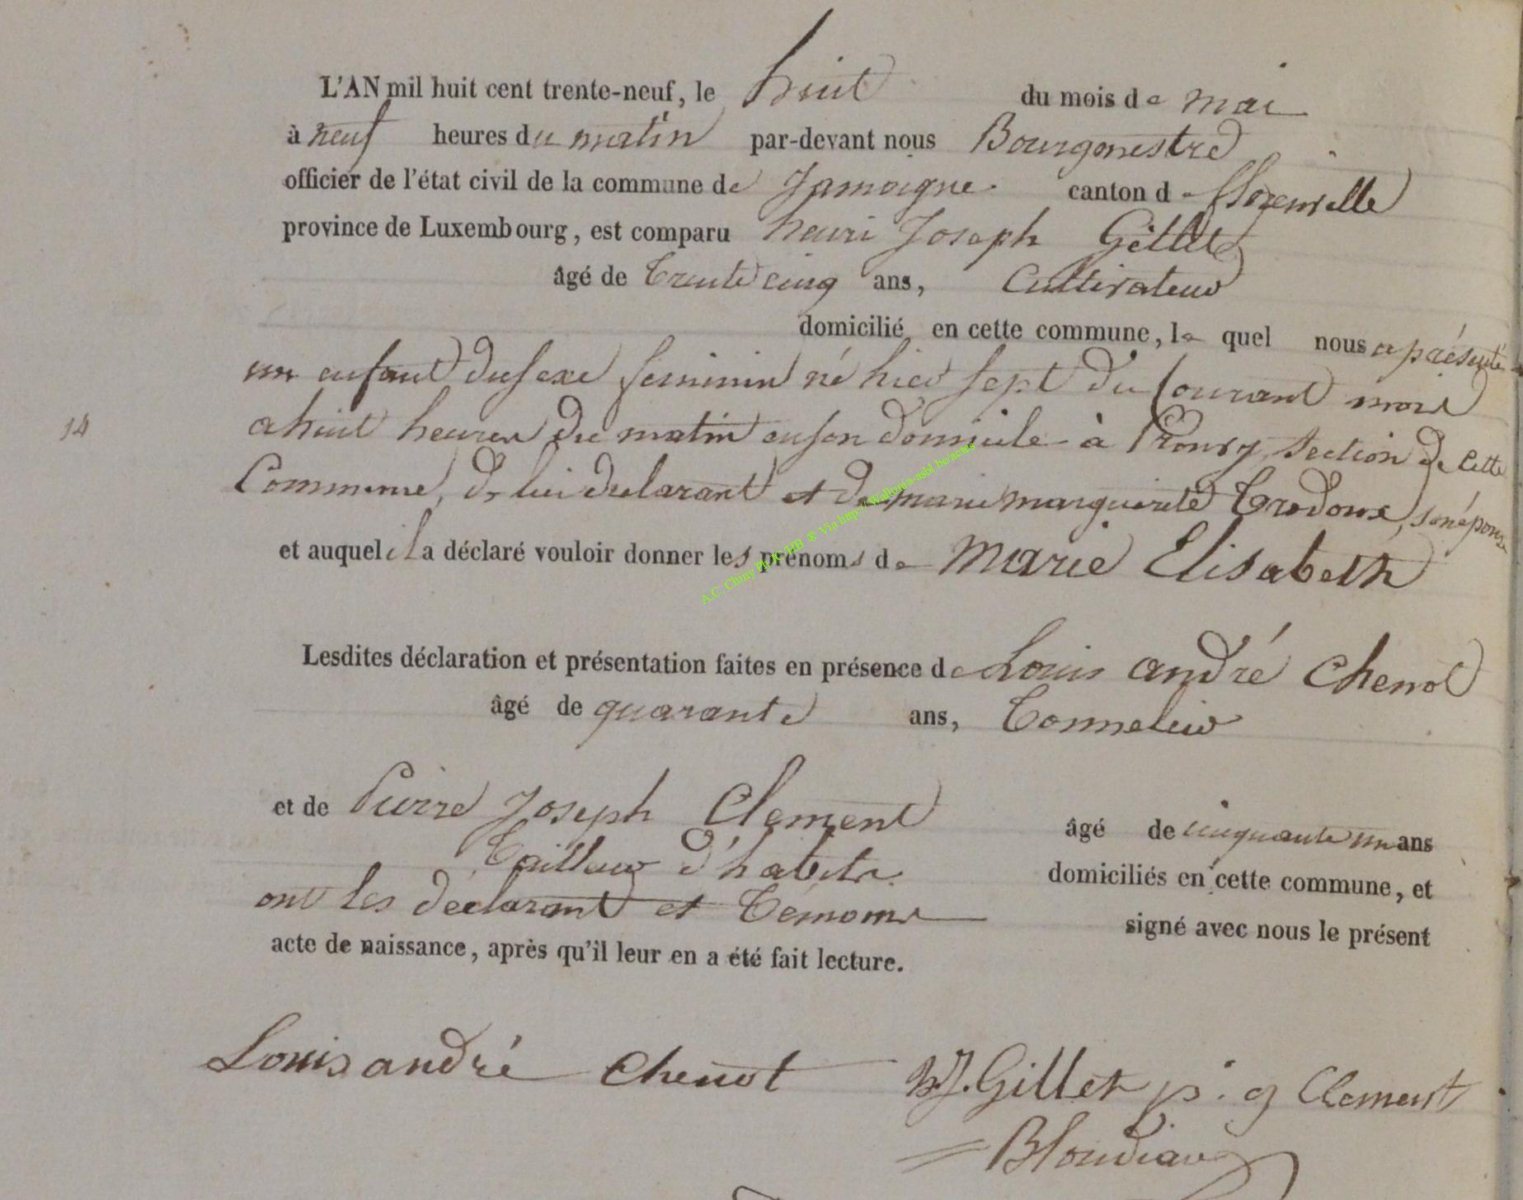 L'AN mil huit cent trente-neuf, le huit du mois de mai
à neuf heures du matin par-devant nous Bourgmestre
officier de l'état civil de la commune de Jamoigne canton de florenville
province de Luxembourg, est comparu henri Joseph Gillet
âgé de trente cinq ans, Cultivateur
domicilié en cette commune, le quel nous a présenté
un enfant du sexe feminin né hier sept du Courant mois
a huit heures du matin en son domicile à Prouvy, section de cette
Commune, de lui declarant et de marie marguerite Crodoux, son épouse
et auquel il a déclaré vouloir donner les prénoms de Marie Elisabeth
14
Lesdites déclaration et présentation faites en présence de Louis andré Chenot
âgé de quarante ans, Tonnelier
et de Pierre Joseph Clement âgé de cinquante un ans
Tailleur d'habits domiciliés en cette commune, et
ont les declarant et Témoins signé avec nous le présent
acte de naissance, après qu'il leur en a été fait lecture.
Louis andré Chenot h.J. Gillet p. j Clement